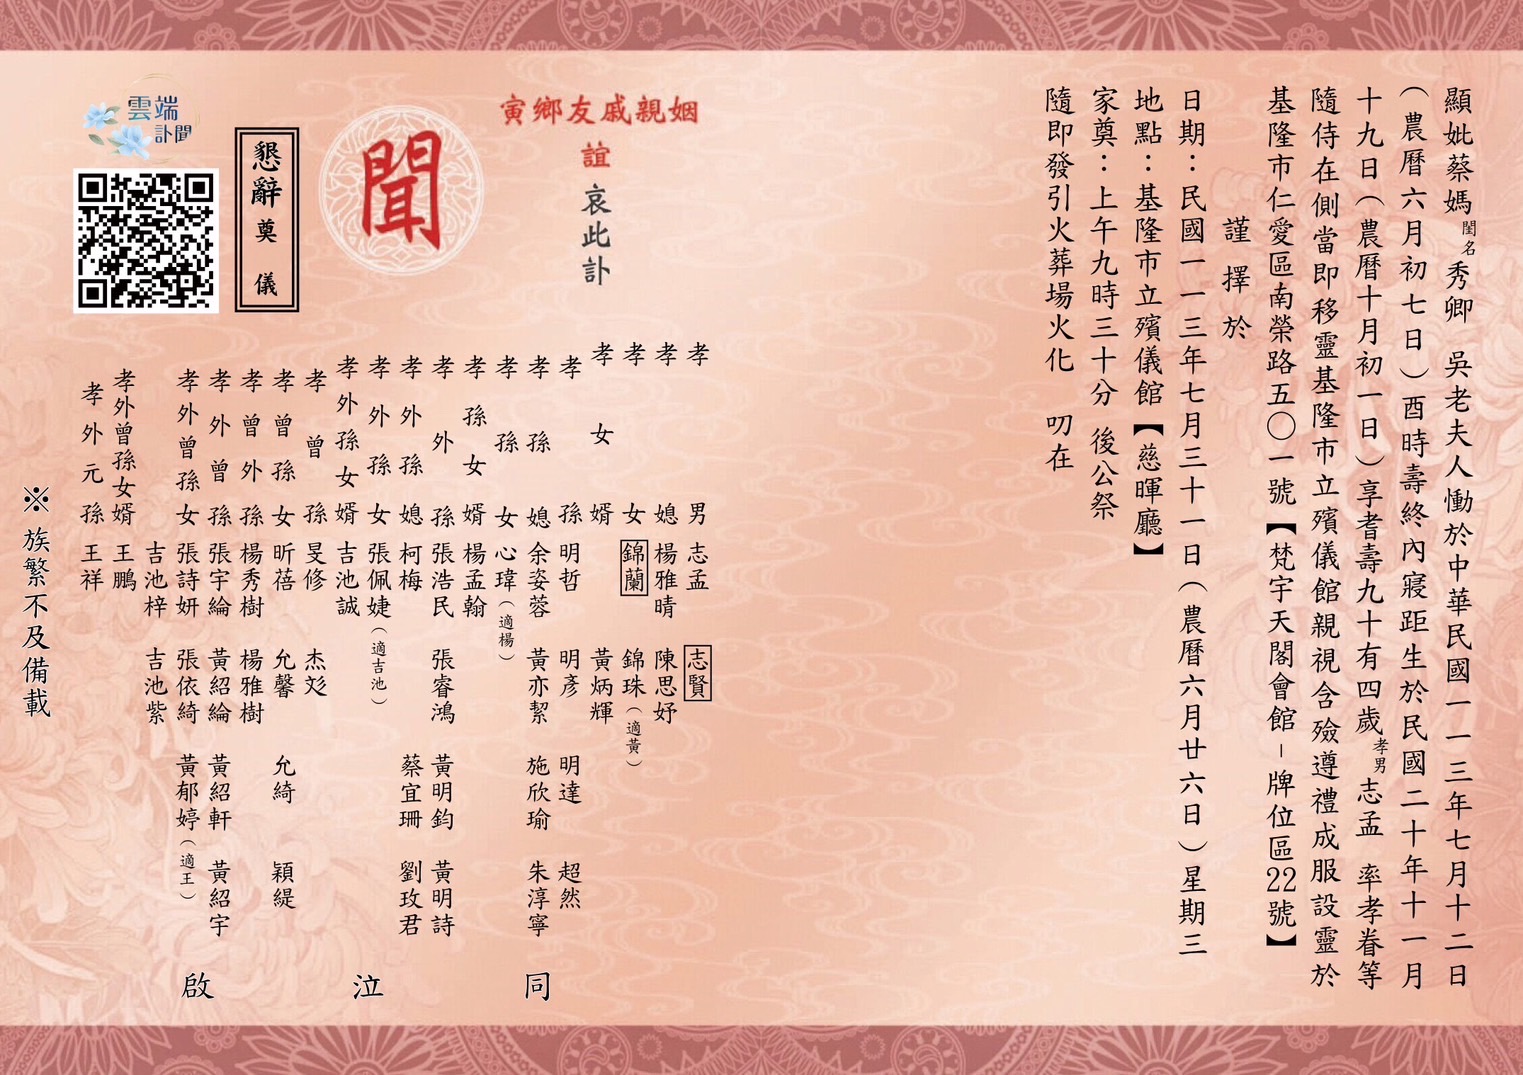 顯妣蔡媽閨名秀卿 吳老夫人慟於中華民國一一三年七月十二日
（農曆六月初七日）酉時壽終內寢距生於民國二十年十一月
十九日（農曆十月初一日）享耆壽九十有四歲孝男志孟 率孝眷等
隨侍在側當即移靈基隆市立殯儀館親視含殮遵禮成服設靈於
基隆市仁愛區南榮路五〇一號【梵宇天閣會館－牌位區22號】
謹擇於
日期：民國一一三年七月三十一日（農曆六月廿六日）星期三
地點：基隆市立殯儀館【慈暉廳】
家奠：上午九時三十分 後公祭
隨即發引火葬場火化 叨在
寅鄉友戚親姻
誼
哀此訃
聞
懇辭奠儀
雲端
訃聞
孝男 志孟 志賢
孝媳 楊雅晴 陳思妤
孝女 錦蘭 錦珠（適黃）
孝女婿 黃炳輝
孝孫 明哲 明彥 明達 超然
孝孫媳 余姿蓉 黃亦絜 施欣瑜 朱淳寧
孝孫女 心瑋（適楊）
孝孫女婿 楊孟翰
孝外孫 張浩民 張睿鴻 黃明鈞 黃明詩
孝外孫媳 柯梅 蔡宜珊 劉玫君
孝外孫女 張佩婕（適吉池）
孝外孫女婿 吉池誠
孝曾孫 旻修 杰彣
孝曾孫女 昕蓓 允馨 允綺 穎緹
孝曾外孫 楊秀樹 楊雅樹
孝外曾孫 張宇綸 黃紹綸 黃紹軒 黃紹宇
孝外曾孫女 張詩妍 張依綺 黃郁婷（適王）
吉池梓 吉池紫
孝外曾孫女婿 王鵬
孝外元孫 王祥
同泣啟
※族繁不及備載